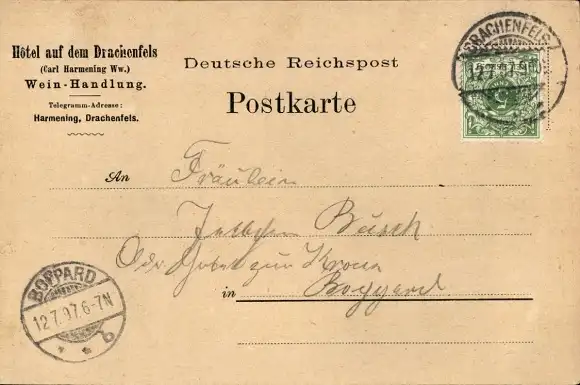 Hôtel auf dem Drachenfels
(Carl Harmening Ww.)
Wein-Handlung.
Telegramm-Adresse:
Harmening, Drachenfels.
Deutsche Reichspost
Postkarte
DRACHENFELS
12.7.97
An Fräulein
Busch
zur Krone
in Boppard
BOPPARD
12.7.97.6-7N